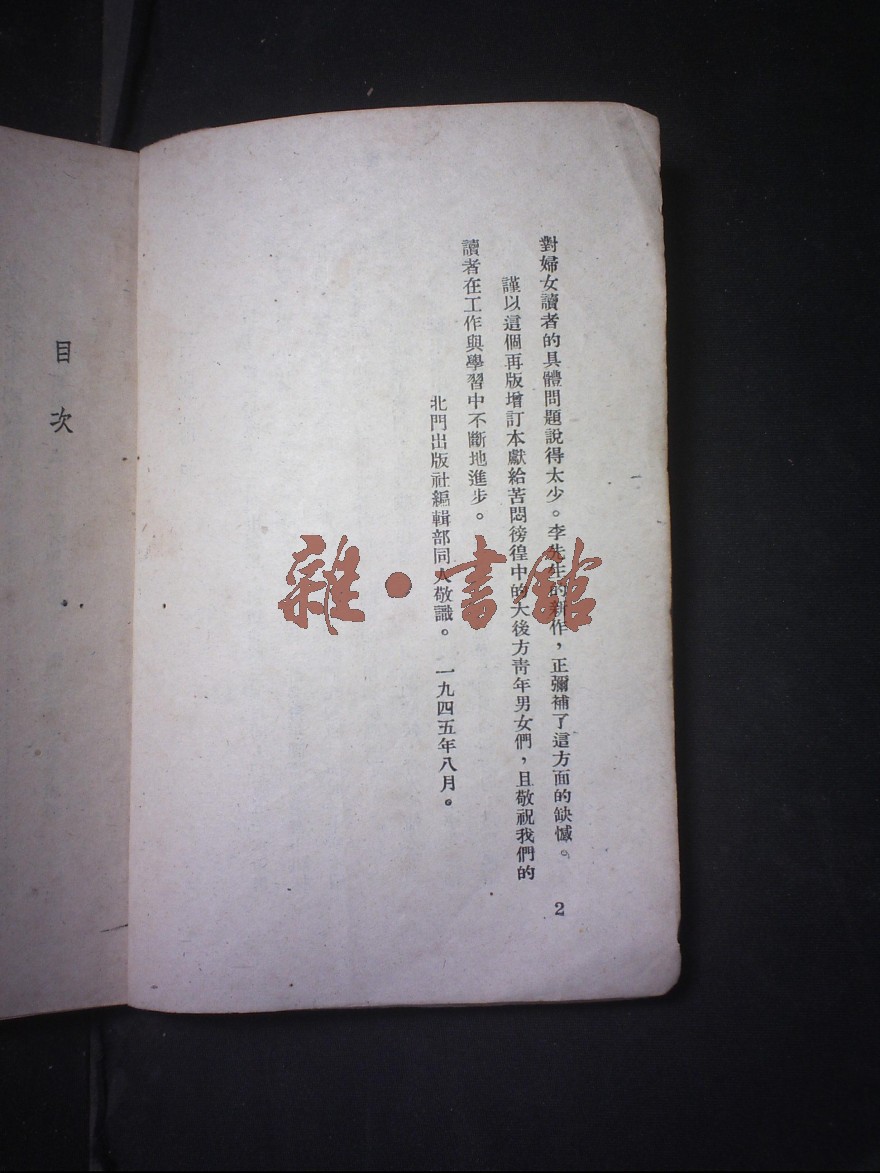 對婦女讀者的具體問題說得太少。李先生的新作，正彌補了這方面的缺憾。
謹以這個再版增訂本獻給苦悶徬徨中的大後方青年男女們，且敬祝我們的
讀者在工作與學習中不斷地進步。
北門出版社編輯部同人敬識。 一九四五年八月。
2
目次
雜·書館